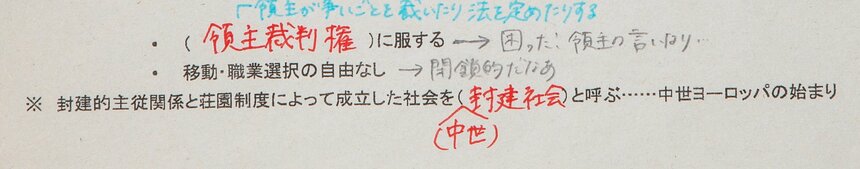 領主が争いごとを裁いたり法を定めたりする
・ (領主裁判権)に服する → 困った! 領主の言いなり…
・ 移動・職業選択の自由なし → 閉鎖的だなあ
※ 封建的主従関係と荘園制度によって成立した社会を(封建社会)と呼ぶ……中世ヨーロッパの始まり
(中世)